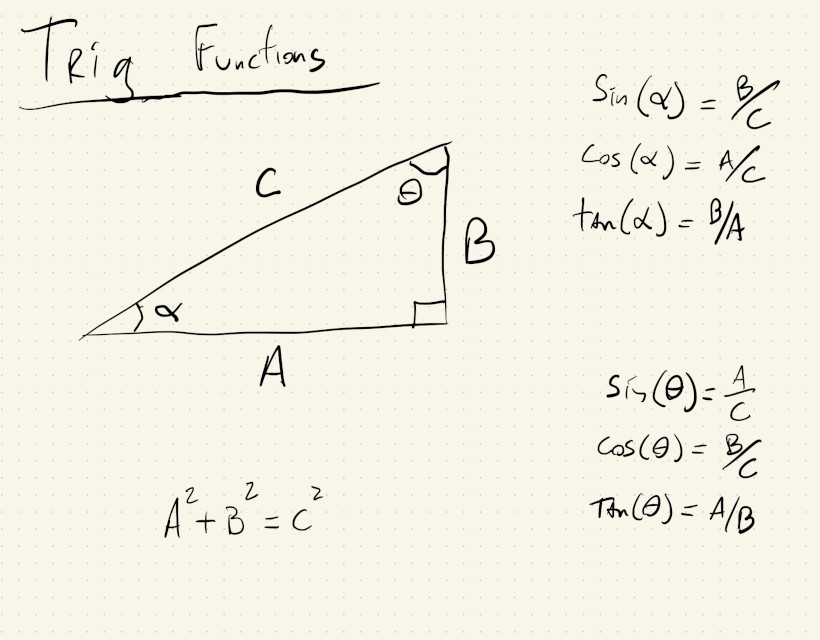 Trig Functions
Sin(α) = B/C
Cos(α) = A/C
tan(α) = B/A
C
θ
B
α
A
Sin(θ) = A/C
Cos(θ) = B/C
Tan(θ) = A/B
A² + B² = C²